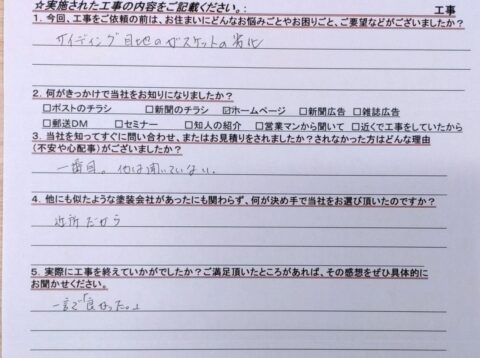 ☆実施された工事の内容をご記載ください。: 工事
1. 今回、工事をご依頼の前は、お住まいにどんなお悩みごとやお困りごと、ご要望などがございましたか?
サイディング目地のガスケットの劣化
2. 何がきっかけで当社をお知りになりましたか?
□ポストのチラシ □新聞のチラシ ☑ホームページ □新聞広告 □雑誌広告
□郵送DM □セミナー □知人の紹介 □営業マンから聞いて □近くで工事をしていたから
3. 当社を知ってすぐに問い合わせ、またはお見積りをされましたか?されなかった方はどんな理由
(不安や心配事)がございましたか?
一番目。他は聞いていない。
4. 他にも似たような塗装会社があったにも関わらず、何が決め手で当社をお選び頂いたのですか?
近所だから
5. 実際に工事を終えていかがでしたか?ご満足頂いたところがあれば、その感想をぜひ具体的に
お聞かせください。
一言で「良かった。」